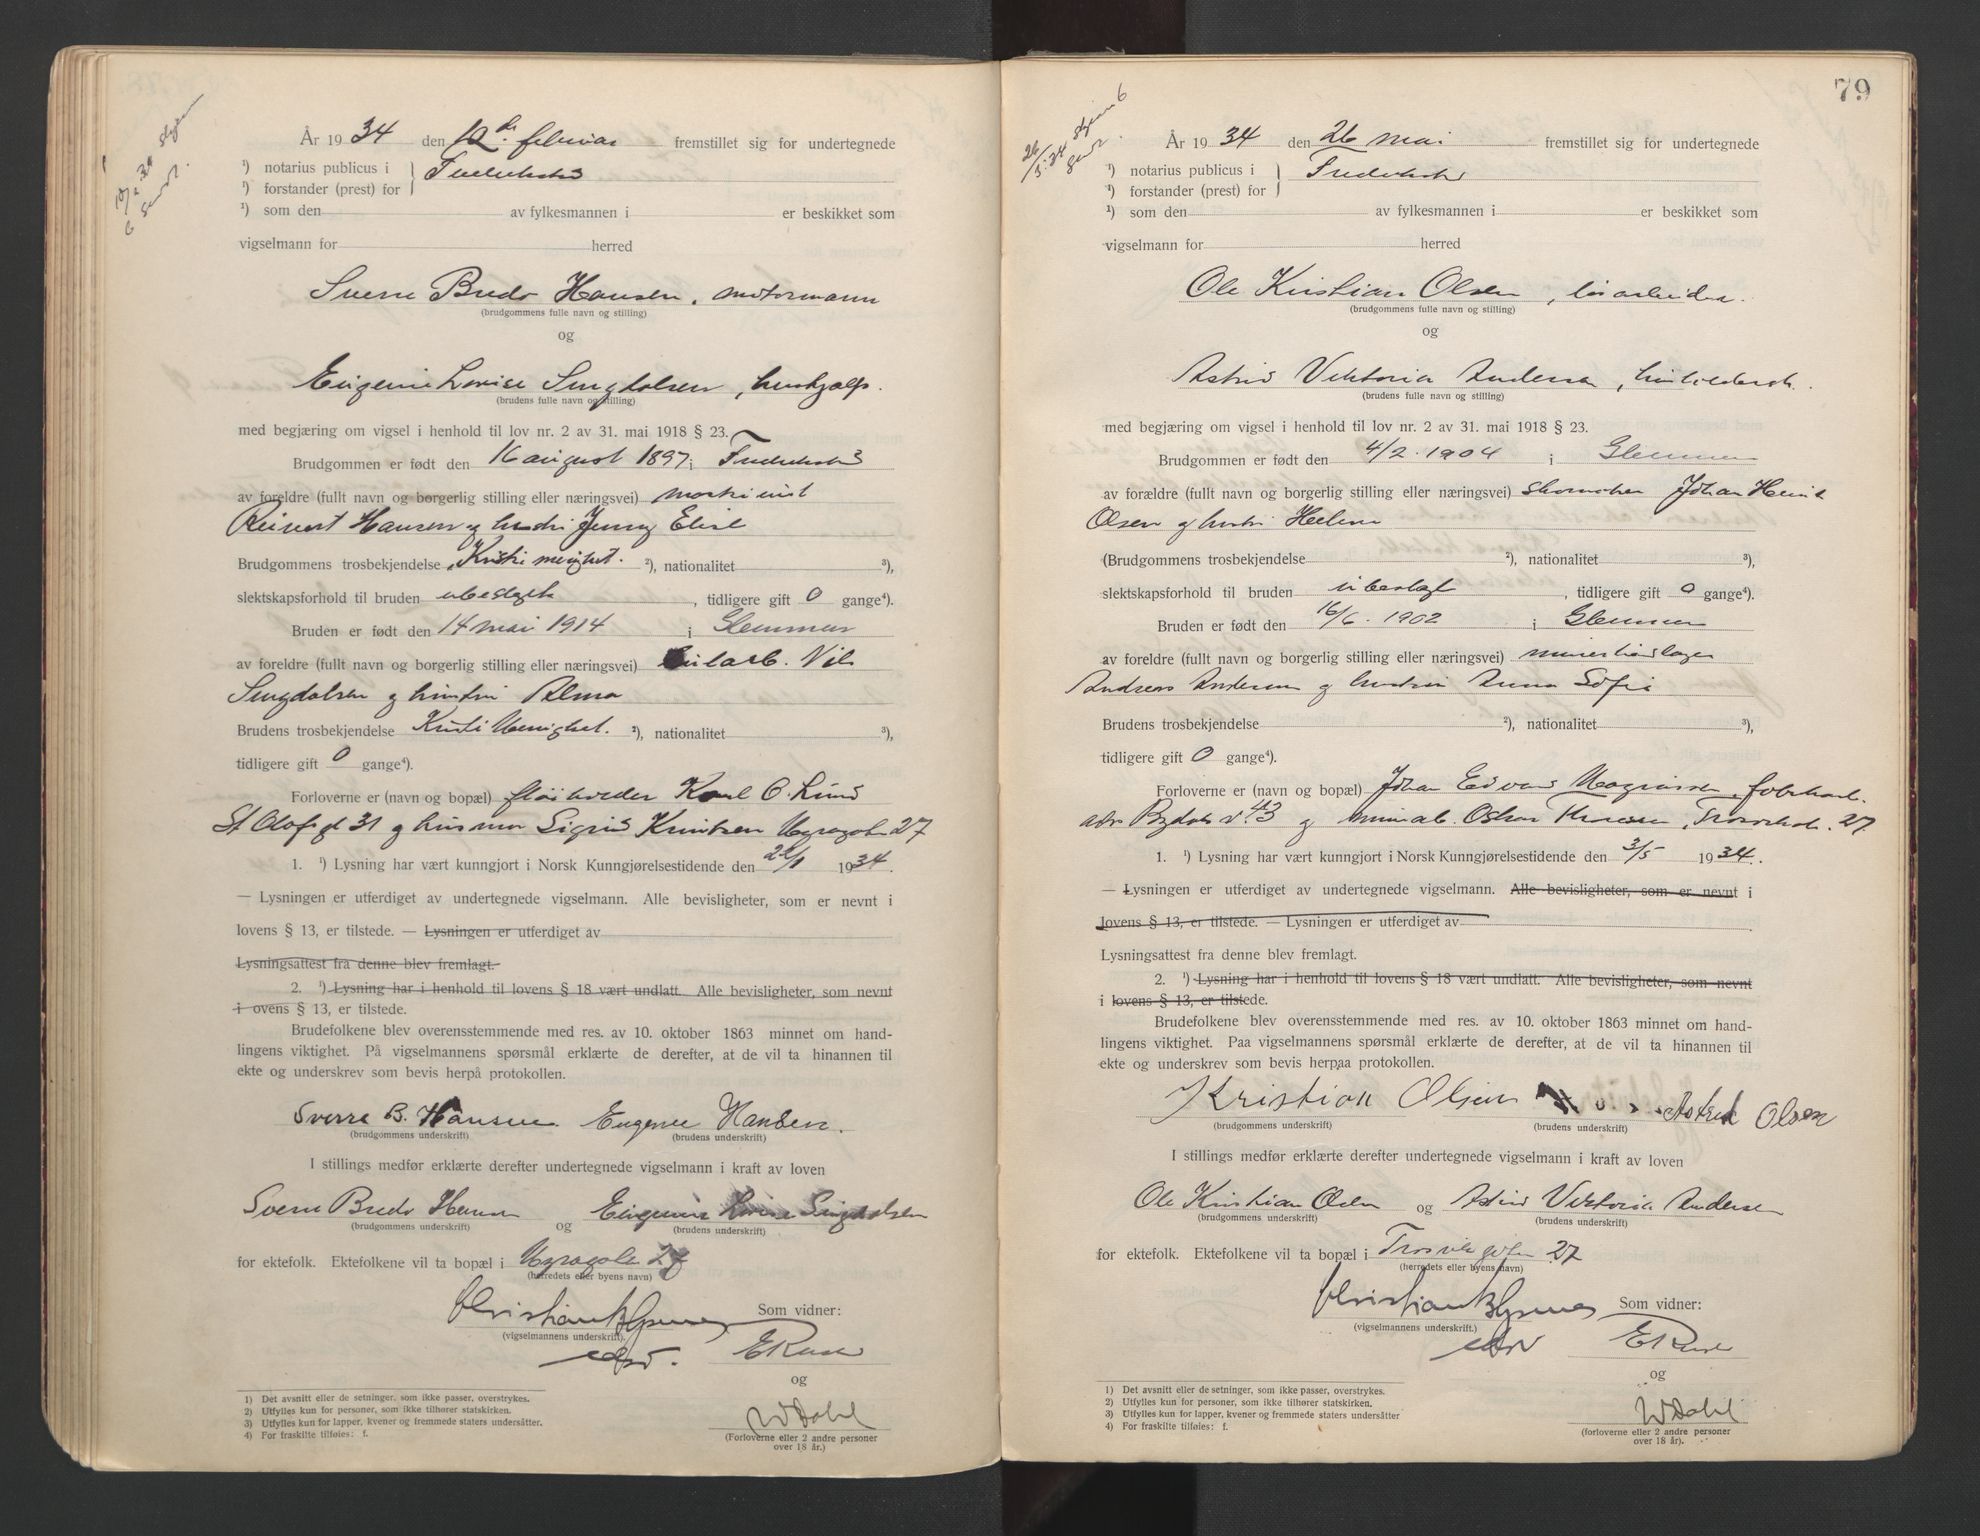 År 1934 den 10de februar fremstillet sig for undertegnede
¹) notarius publicus i
¹) forstander (prest) for
¹) som den av fylkesmannen i er beskikket som
vigselmann for herred
Sverre Bredo Hansen, motormann
(brudgommens fulle navn og stilling)
og
Eugenie Lovise Singdalsen, hushjælp.
(brudens fulle navn og stilling)
med begjæring om vigsel i henhold til lov nr. 2 av 31. mai 1918 § 23.
Brudgommen er født den 16 august 1897 i Fredrikstad
av foreldre (fullt navn og borgerlig stilling eller næringsvei) maskinist
Reinert Hansen og hustru Jenny Elise
Brudgommens trosbekjendelse Kristi menighet. ²), nationalitet ³),
slektskapsforhold til bruden ubeslegtet, tidligere gift 0 gange⁴).
Bruden er født den 14 mai 1914 i Glemmen
av foreldre (fullt navn og borgerlig stilling eller næringsvei)
Singdalsen og hustru Alma
Brudens trosbekjendelse Kristi Menighet. ²), nationalitet ³),
tidligere gift 0 gange⁴).
Forloverne er (navn og bopæl) Karl O. Lund
St Olafs gt 31 og husmor Sigrid Knutsen 27
1. ¹) Lysning har vært kunngjort i Norsk Kunngjørelsestidende den 22/1 1934.
— Lysningen er utferdiget av undertegnede vigselmann. Alle bevisligheter, som er nevnt i
lovens § 13, er tilstede. — Lysningen er utferdiget av
Lysningsattest fra denne blev fremlagt.
2. ¹) Lysning har i henhold til lovens § 18 vært undlatt. Alle bevisligheter, som nevnt
i ovens § 13, er tilstede.
Brudefolkene blev overensstemmende med res. av 10. oktober 1863 minnet om hand-
lingens viktighet. På vigselmannens spørsmål erklærte de derefter, at de vil ta hinannen til
ekte og underskrev som bevis herpå protokollen.
Sverre B. Hansen Eugenie Hansen.
(brudgommens underskrift) (brudens underskrift)
I stillings medfør erklærte derefter undertegnede vigselmann i kraft av loven
Sverre Bredo Hansen og Eugenie Lovise Singdalsen
(brudgommens underskrift) (brudens underskrift)
for ektefolk. Ektefolkene vil ta bopæl i 27
(herredets eller byens navn)
Som vidner:
(vigselmannens underskrift).
og
W Dahl
(Forloverne eller 2 andre personer
over 18 år.)
1) Det avsnitt eller de setninger, som ikke passer, overstrykes.
2) Utfylles kun for personer, som ikke tilhører statskirken.
3) Utfylles kun for lapper, kvener og fremmede staters undersåtter.
4) For fraskilte tilføies: f.
79
År 1934 den 26 mai fremstillet sig for undertegnede
¹) notarius publicus i
¹) forstander (prest) for
Fredrikstad
¹) som den av fylkesmannen i er beskikket som
vigselmann for herred
Ole Kristian Olsen, løsarbeider.
(brudgommens fulle navn og stilling)
og
Astrid Viktoria Andersen,
(brudens fulle navn og stilling)
med begjæring om vigsel i henhold til lov nr. 2 av 31. mai 1918 § 23.
Brudgommen er født den 4/2 . 1904 i Glemmen
av forældre (fullt navn og borgerlig stilling eller næringsvei) skomaker Johan Henrik
Olsen og hustru Helene
(Brudgommens trosbekjendelse ²), nationalitet ³),
slektskapsforhold til bruden ubeslegtet, tidligere gift 0 gange⁴).
Bruden er født den 16/6 . 1902 i Glemmen
av foreldre (fullt navn og borgerlig stilling eller næringsvei)
Andreas Andersen og hustru Anna Sofie
Brudens trosbekjendelse ²), nationalitet ³),
tidligere gift 0 gange⁴).
Forloverne er (navn og bopæl) Johan Edvard Magnussen,
43 og Oskar 27
1. ¹) Lysning har vært kunngjort i Norsk Kunngjørelsestidende den 3/5 1934.
— Lysningen er utferdiget av undertegnede vigselmann. Alle bevisligheter, som er nevnt i
lovens § 13, er tilstede. — Lysningen er utferdiget av
Lysningsattest fra denne blev fremlagt.
2. ¹) Lysning har i henhold til lovens § 18 vært undlatt. Alle bevisligheter, som nevnt
i lovens § 13, er tilstede.
Brudefolkene blev overensstemmende med res. av 10. oktober 1863 minnet om hand-
lingens viktighet. Paa vigselmannens spørsmål erklærte de derefter, at de vil ta hinannen til
ekte og underskrev som bevis herpaa protokollen.
Kristian Olsen Astrid Olsen
(brudgommens underskrift) (brudens underskrift)
I stillings medfør erklærte derefter undertegnede vigselmann i kraft av loven
Ole Kristian Olsen og Astrid Viktoria Andersen
(brudgommens underskrift) (brudens underskrift)
for ektefolk. Ektefolkene vil ta bopæl i 27
(herredets eller byens navn)
Som vidner:
(vigselmannens underskrift.)
og
W Dahl
(forloverne eller 2 andre personer
over 18 år).
1) Det avsnitt eller de setninger, som ikke passer, overstrykes.
2) Utfylles kun for personer, som ikke tilhører statskirken.
3) Utfylles kun for lapper, kvener og fremmede staters undersåtter
4) For fraskilte tilføies: f.